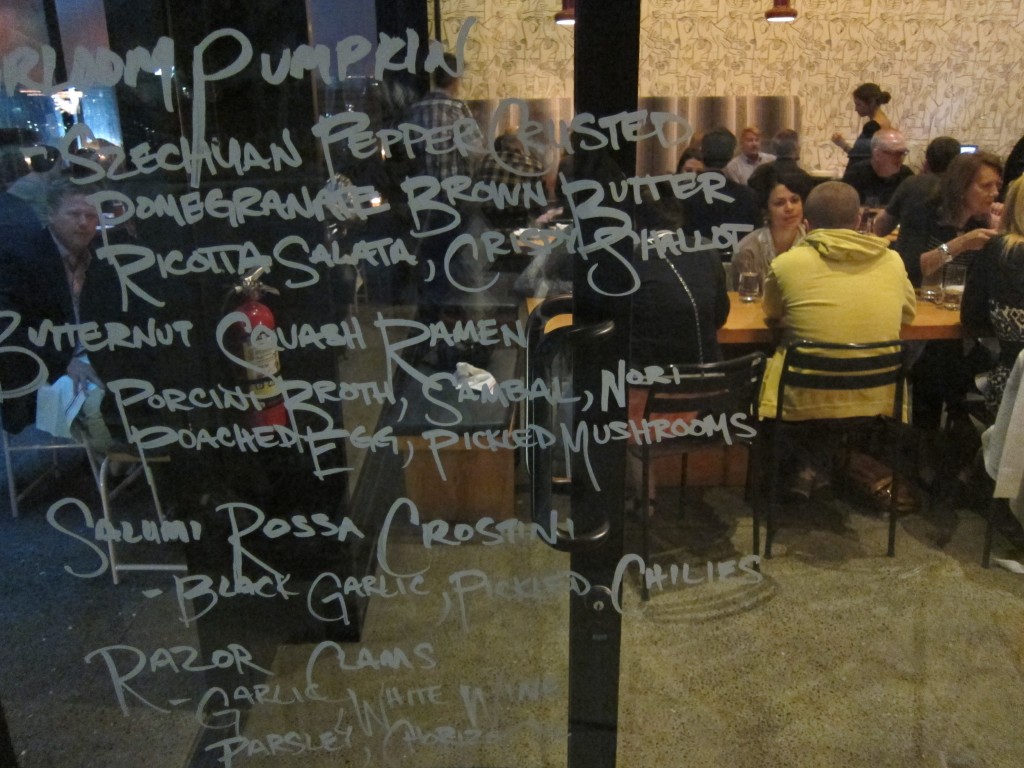 RLOOM PUMPKIN
- SZECHUAN PEPPER CRUSTED
POMEGRANATE BROWN BUTTER
RICOTTA SALATA, CRISPY SHALLOT
BUTTERNUT SQUASH RAMEN
- PORCINI BROTH, SAMBAL, NORI
POACHED EGG, PICKLED MUSHROOMS
SALUMI ROSSA CROSTINI
- BLACK GARLIC, PICKLED CHILIES
RAZOR CLAMS
- GARLIC, WHITE WINE
PARSLEY, CHORIZO